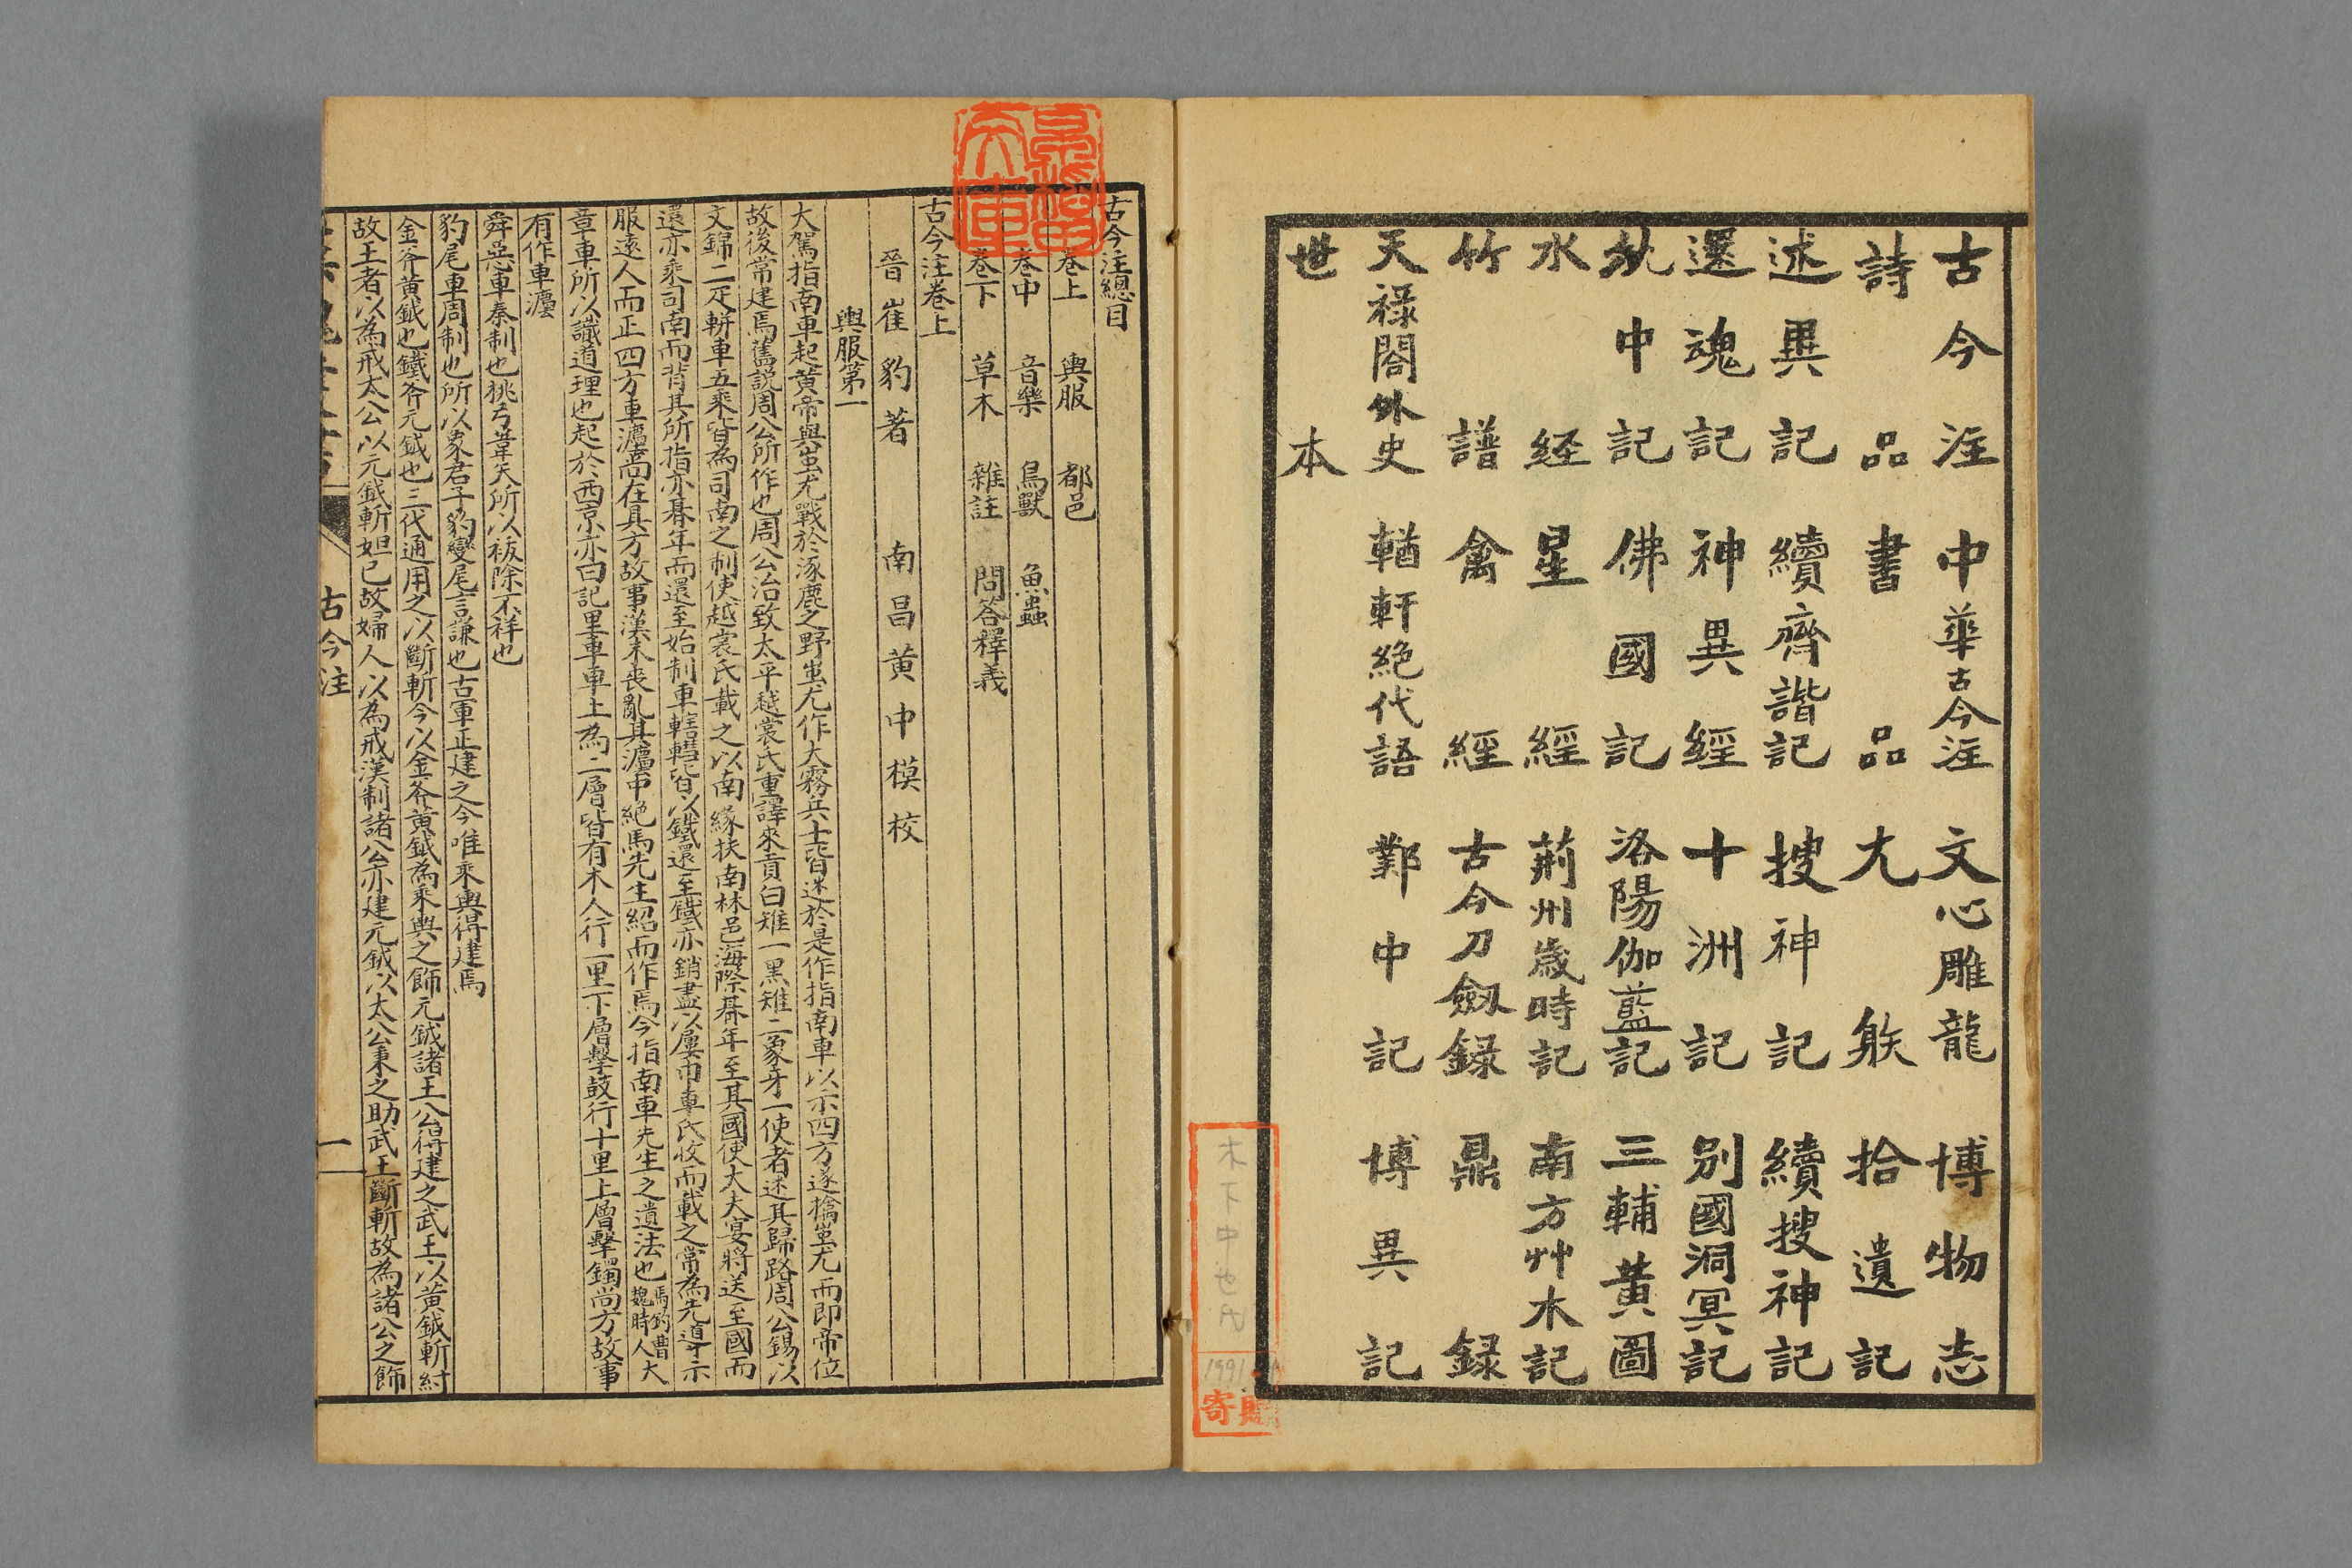 古今注 中華古今注 文心雕龍 博物志
詩品 書品 尤射 拾遺記
述異記 續齊諧記 搜神記 續搜神記
還魂記 神異經 十洲記 別國洞冥記
枕中記 佛國記 洛陽伽藍記 三輔黃圖
水經 星經 荊州歲時記 南方艸木記
竹譜 禽經 古今刀劍録 鼎録
天祿閣外史 輶軒絕代語 鄴中記 博異記
世本
古今注總目
卷上 輿服 都邑
卷中 音樂 鳥獸 魚蟲
卷下 草木 雜註 問答釋義
古今注卷上
晉崔豹著 南昌黄中模校
輿服第一
大駕指南車起黄帝與蚩尤戰於涿鹿之野蚩尤作大霧兵士皆迷於是作指南車以示四方遂擒蚩尤而即帝位
故後常建焉舊説周公所作也周公治致太平越裳氏重譯來貢白雉一黑雉二象牙一使者迷其歸路周公錫以
文錦二疋軿車五乘皆為司南之制使越裳氏載之以南緣扶南林邑海際朞年至其國使大夫宴將送至國而
還亦乘司南而背其所指亦朞年而還至始制車轄轊皆以鐵還至鐵亦銷盡以屬巾車氏收而載之常為先導示
服遠人而正四方車灋具在尚方故事漢末喪亂其灋中絕馬先生紹而作焉今指南車先生之遺法也馬鈞曹魏時人大
章車所以識道理也起於西京亦曰記里車車上為二層皆有木人行一里下層擊鼓行十里上層擊鐲尚方故事
有作車灋
舜惡車秦制也桃弓葦矢所以祓除不祥也
豹尾車周制也所以象君子豹變尾言謙也古軍正建之今唯乘輿得建焉
金斧黄鉞也鐵斧元鉞也三代通用之以斷斬今以金斧黄鉞為乘輿之飾元鉞諸王公得建之武王以黄鉞斬紂
故王者以為戒太公以元鉞斬妲己故婦人以為戒漢制諸公亦建元鉞以太公秉之助武王斷斬故為諸公之飾
古今注
一
寄贈